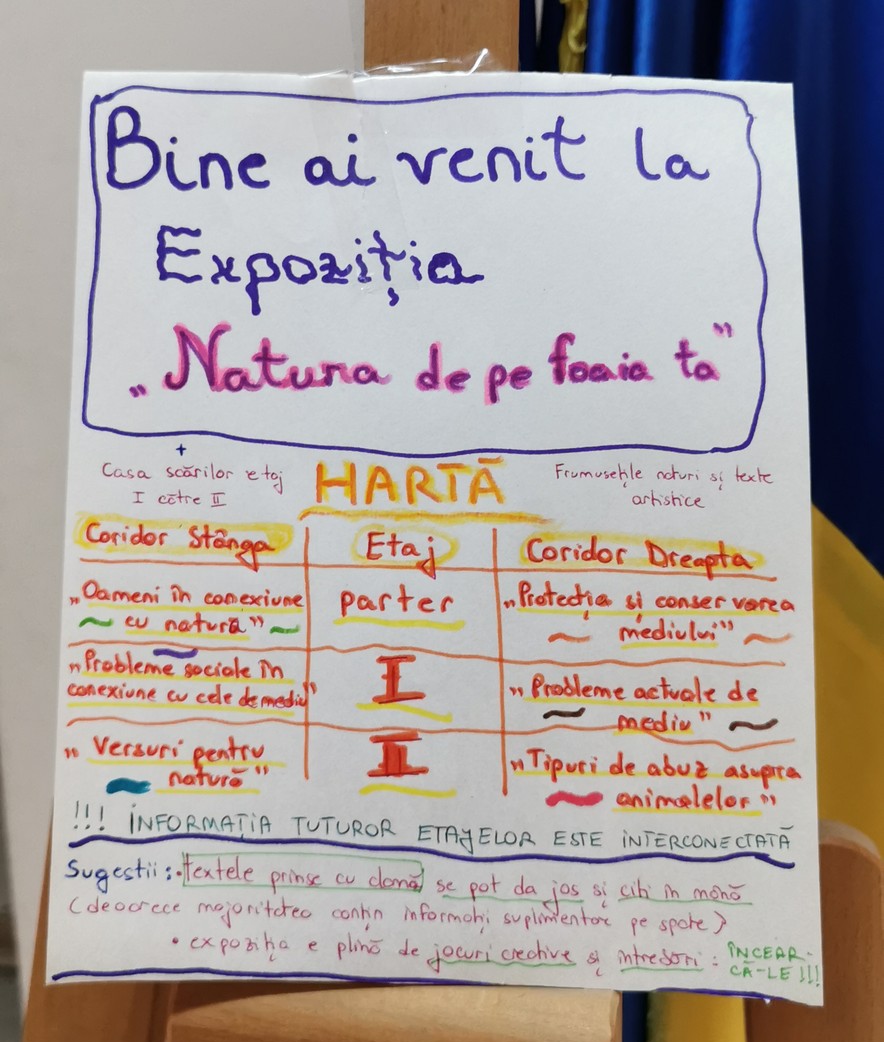 Bine ai venit la
Expoziția
„Natura de pe foaia ta”
+
Casa scărilor etaj
I către II
HARTĂ
Frumusețile naturi și texte
artistice
Coridor Stânga
Etaj
Coridor Dreapta
„Oameni în conexiune
cu natură”
parter
„Protecția și conservarea
mediului”
„Probleme sociale în
conexiune cu cele de mediu”
I
„Probleme actuale de
mediu”
„Versuri pentru
natură”
II
„Tipuri de abuz asupra
animalelor”
!!! INFORMAȚIA TUTUROR ETAJELOR ESTE INTERCONECTATĂ
Sugestii: •textele prinse cu clamă se pot da jos și citi în mână
(deoarece majoritatea conțin informații suplimentare pe spate)
• expoziția e plină de jocuri creative și întresări : ÎNCEAR-
CĂ-LE !!!